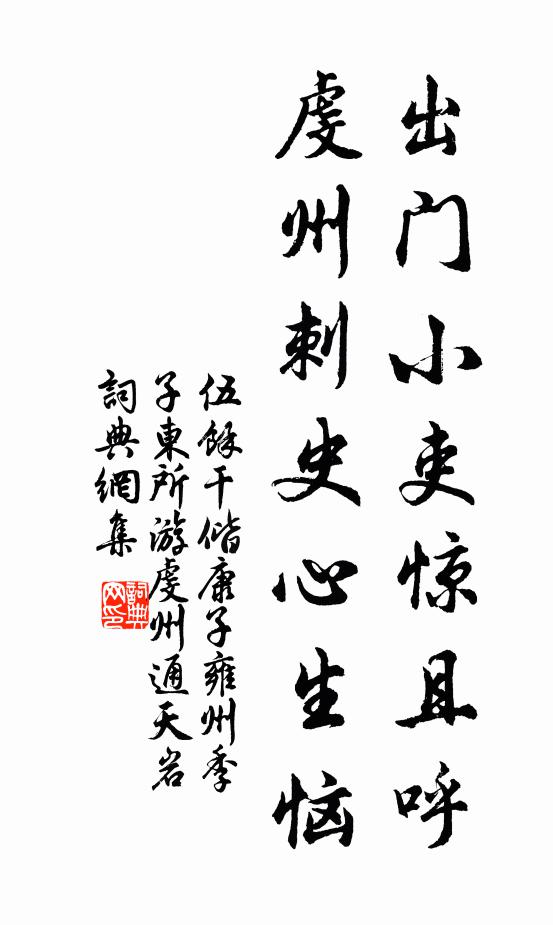 出门小吏惊且呼
虔州刺史心生恼
伍餘干偕康子雍州季
子東所游虔州通天岩
詞典網集
詞典网印